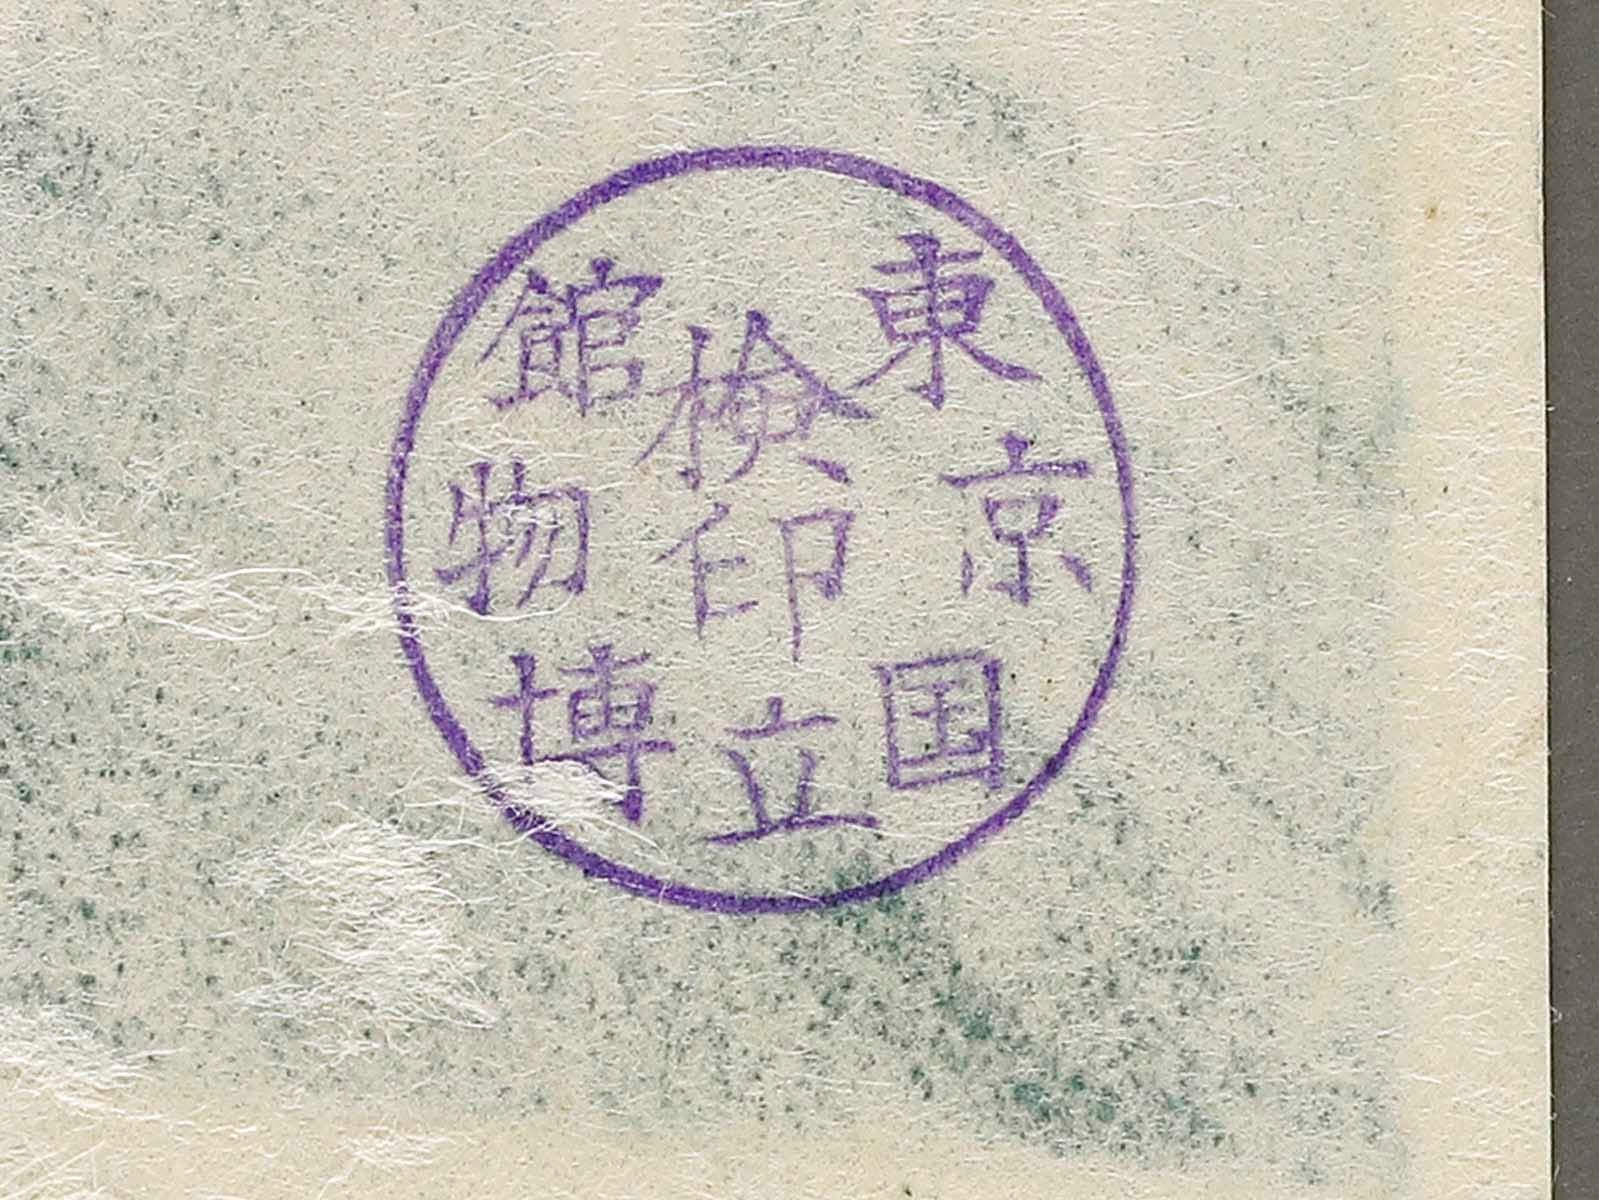 東京国立博物館
検印